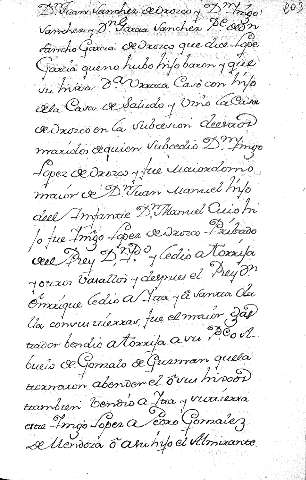 803
Dn Juan Sanchez de orozco y Dn Iñigo
Sanchez y Dn Garcia Sanchez
Sancho Garcia de orozco que dice Lope
Garcia que no hubo hijo baron y que
su hija Da Urraca Casó con hijo
de la Casa de Salcedo y vino la Casa
de orozco en la subcesion de
maridos de quien subcedio Dn Iñigo
Lopez de orozco y fue Maiordomo
maior de Dn Juan Manuel hijo
del Infante Dn Manuel Cuio hi
jo fue Iñigo Lopez de orozco Pribado
del Rey Dn y le dio a torija
y otros vasallos y despues el Rey Dn
Enrrique le dio a Ita y
con sus tierras, fue el maior
bendio a torija a su
buelo de Gonzalo de Guzman que la
tornaron a bender el o sus hijos
tambien bendio a Ita y su tierra
este Iñigo Lopez a Pedro Gonzalez
de Mendoza o a su hijo el Almirante